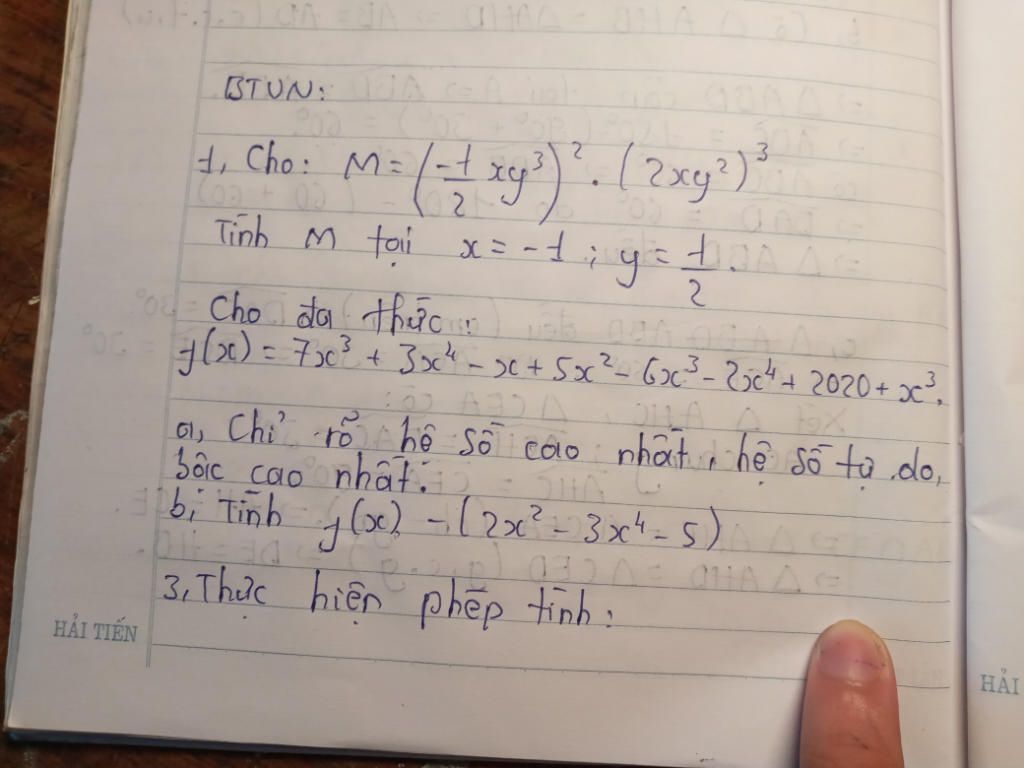 BTVN:
1, Cho: M = (-1/2 xy³)² . (2xy²)³
Tính M tại x = -1 ; y = 1/2.
Cho đa thức:
f(x) = 7x³ + 3x⁴ - x + 5x² - 6x³ - 2x⁴ + 2020 + x³.
a, Chỉ rõ hệ số cao nhất, hệ số tự do,
bậc cao nhất.
b, Tính f(x) - (2x² - 3x⁴ - 5)
3, Thực hiện phép tính:
HẢI TIẾN
HẢI